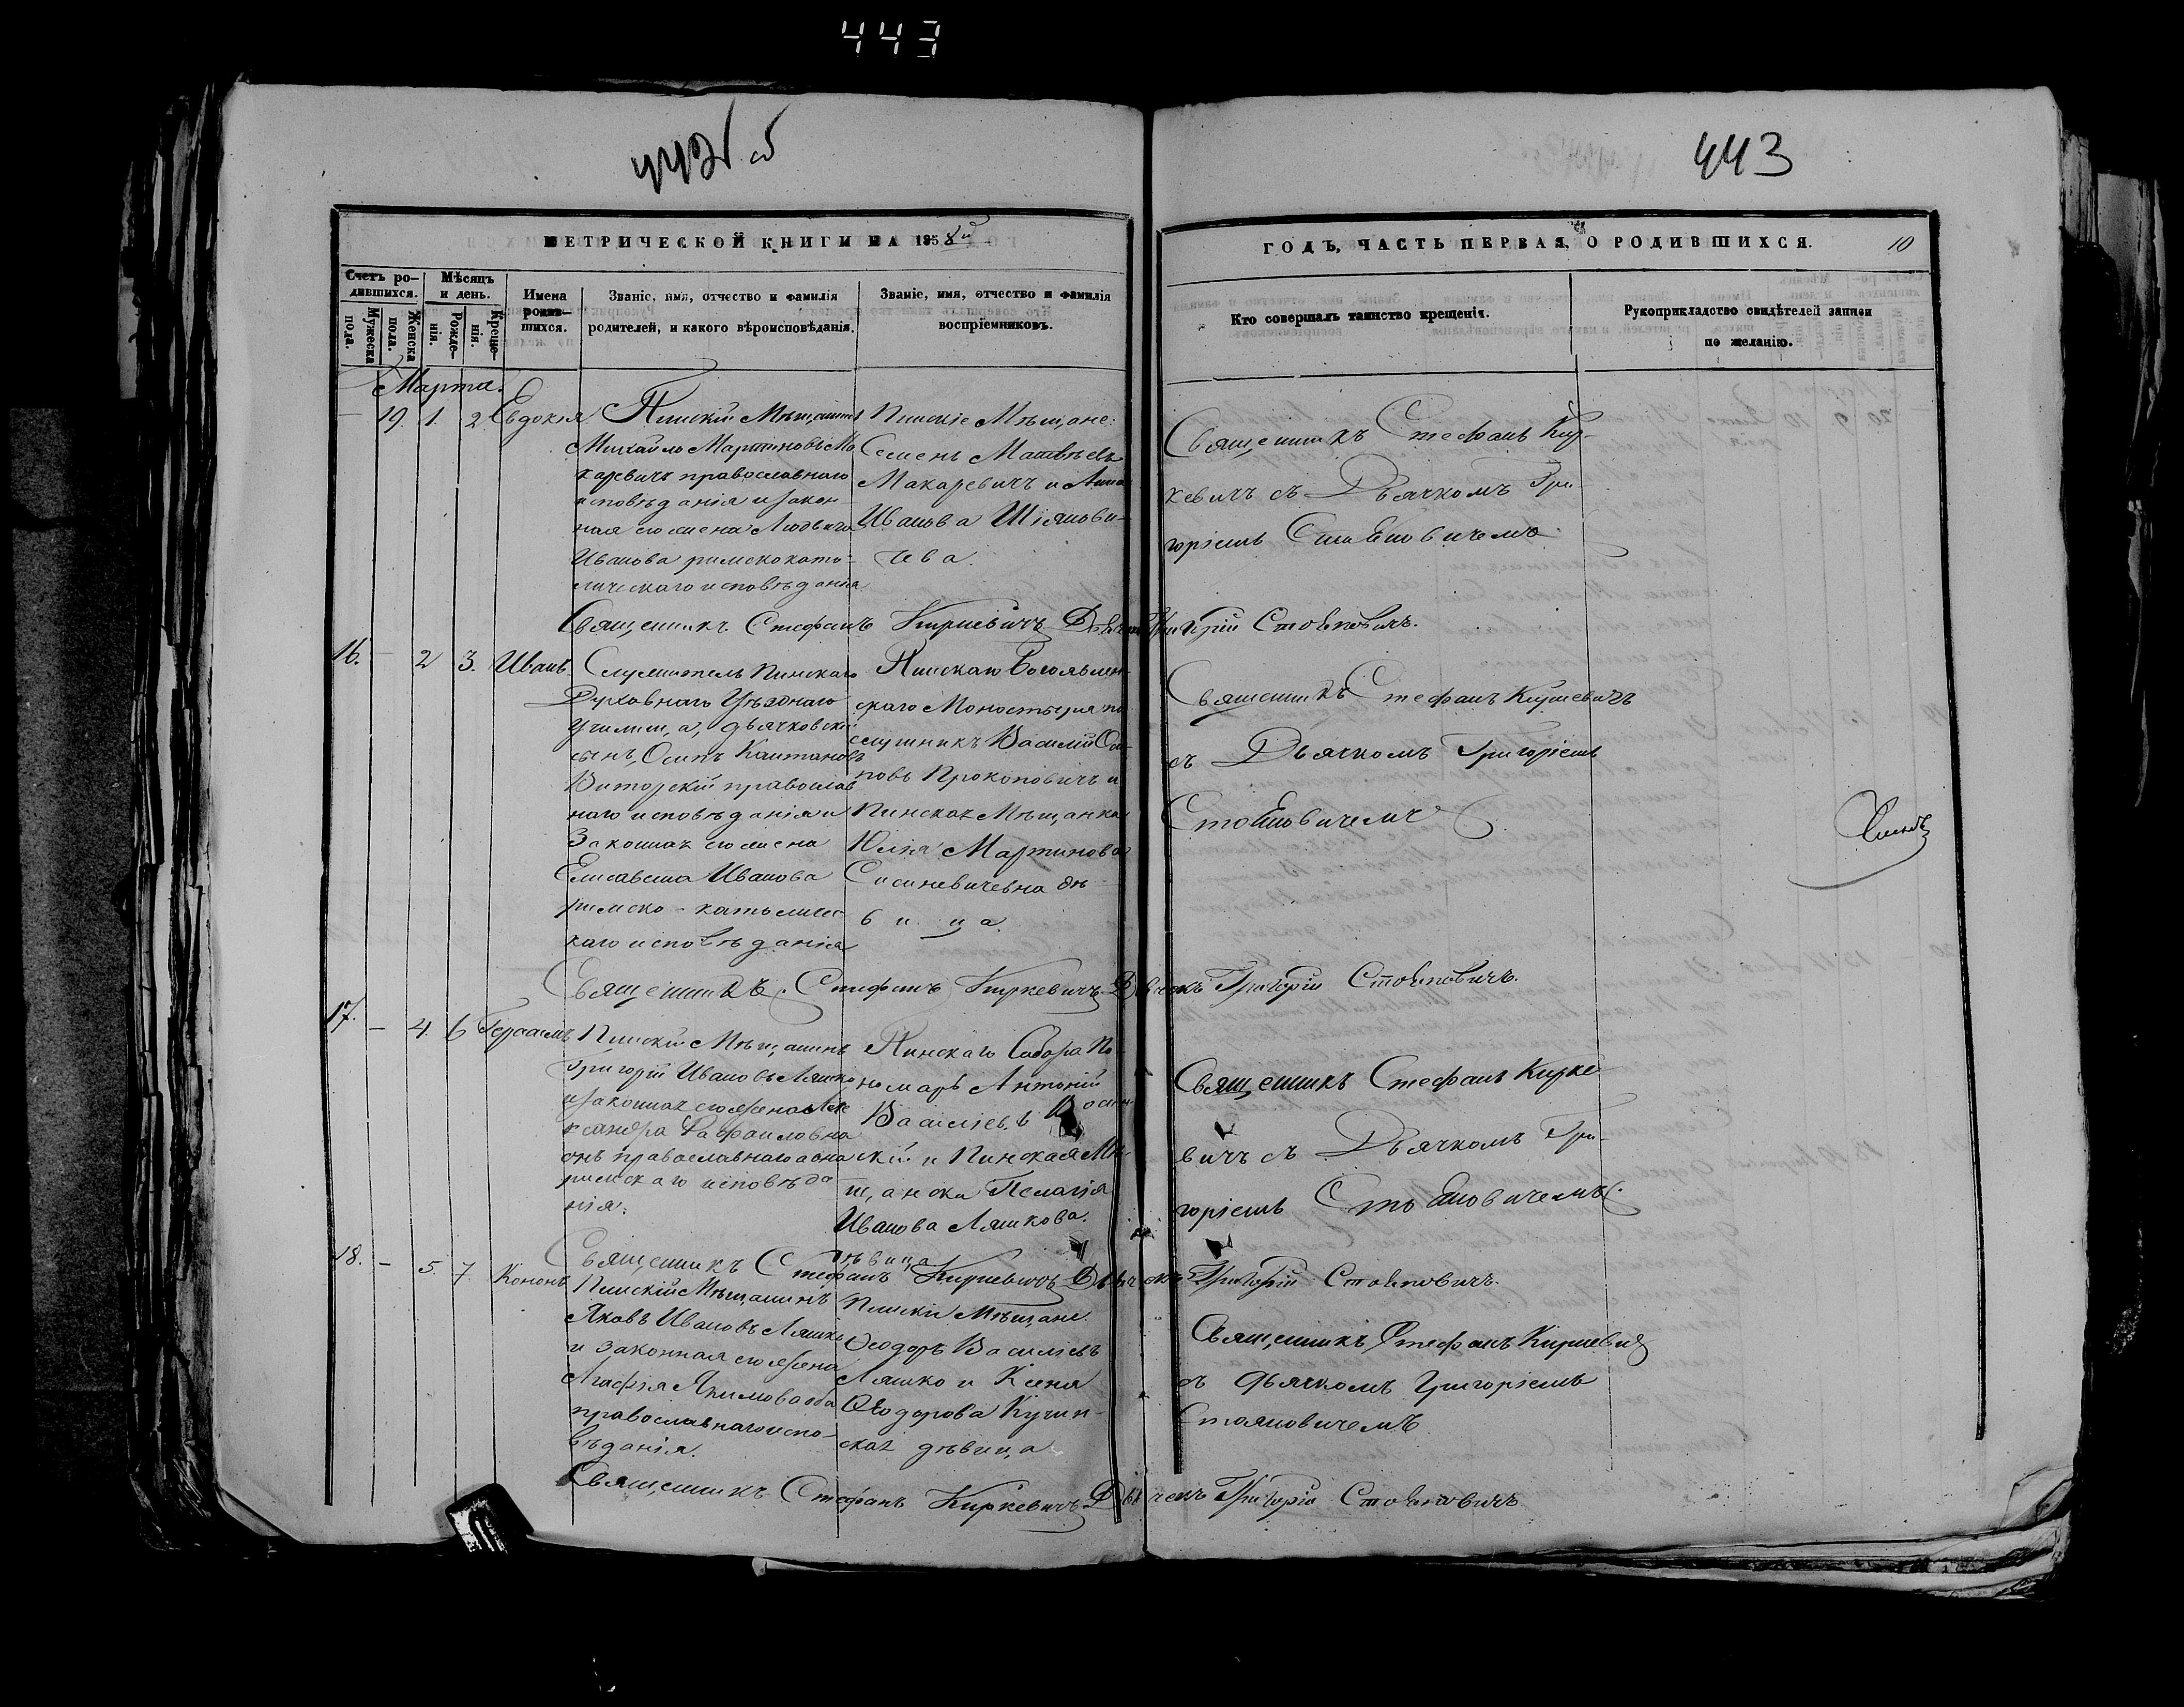 443
442 об
443
МЕТРИЧЕСКОЙ КНИГИ НА 1858й
ГОДЪ, ЧАСТЬ ПЕРВАЯ, О РОДИВШИХСЯ.
10
Счетъ ро-
дившихся.
Мужеска
пола.
Женска
пола.
Мѣсяцъ
и день.
Рожде-
нія.
Креще-
нія.
Имена
родив-
шихся.
Званіе, имя, отчество и фамилія
родителей, и какого вѣроисповѣданія.
Званіе, имя, отчество и фамилія
воспріемниковъ.
Кто совершалъ таинство крещенія.
Рукоприкладство свидѣтелей записи
по желанію.
Марта.
— 19. 1. 2 Евдокія
Пинскій Мѣщанинъ
Михайло Мартиновъ Ма
каревичъ православнаго
исповѣданія и закон
ная его жена Людвига
Иванова римскокато-
лическаго исповѣданія
Пинскіе Мѣщане:
Семенъ Матвѣевъ
Макаревичъ и Анна
Иванова Шіянови-
чева.
Священникъ Стефанъ Кир-
кевичъ съ Дьячкомъ Гри-
горіемъ Стояновичемъ
Священникъ Стефанъ Киркевичъ Дьячекъ Григорій Стояновичъ.
16. — 2 3. Иванъ
Служитель Пинскаго
Духовнаго Уѣзднаго
училища, дьячковскій
сынъ, Осипъ
Виторскій православ
наго исповѣданія и
Законная его жена
Елисавета Иванова
римско-католичес
каго исповѣданія
Пинскаго Богоявлен-
скаго Монастыря по
слушникъ Василій Оси-
повъ Прокоповичъ и
Пинская Мѣщанка
Юлія Мартинова
дѣ
вица.
Священникъ Стефанъ Киркевичъ
съ Дьячкомъ Григоріемъ
Стояновичемъ
Священникъ Стефанъ Киркевичъ Дьячекъ Григорій Стояновичъ.
17. — 4. 6 Герасимъ
Пинскій Мѣщанинъ
Григорій Ивановъ Ляшко
и законная его жена Але
ксандра Рафаиловна
онъ православнаго а она
римскаго исповѣда
нія.
Пинскаго Собора По-
номарь Антоній
Васильевъ
скій и Пинская Мѣ-
щанка Пелагія
Иванова Ляшкова.
дѣвица
Священникъ Стефанъ Кирке
вичъ съ Дьячкомъ Гри-
горіемъ Стояновичемъ.
Священникъ Стефанъ Киркевичъ Дьячекъ Григорій Стояновичъ.
18. — 5. 7. Кононъ
Пинскій Мѣщанинъ
Яковъ Ивановъ Ляшко
и законная его жена
Агафія Якимова оба
православнаго испо-
вѣданія.
Пинскіи Мѣщане
Ѳеодоръ Васильевъ
Ляшко и Ксенія
Ѳеодорова Кучин-
ская дѣвица
Священникъ Стефанъ Киркевичъ
съ дьячкомъ Григоріемъ
Стояновичемъ
Священникъ Стефанъ Киркевичъ Дьячекъ Григорій Стояновичъ